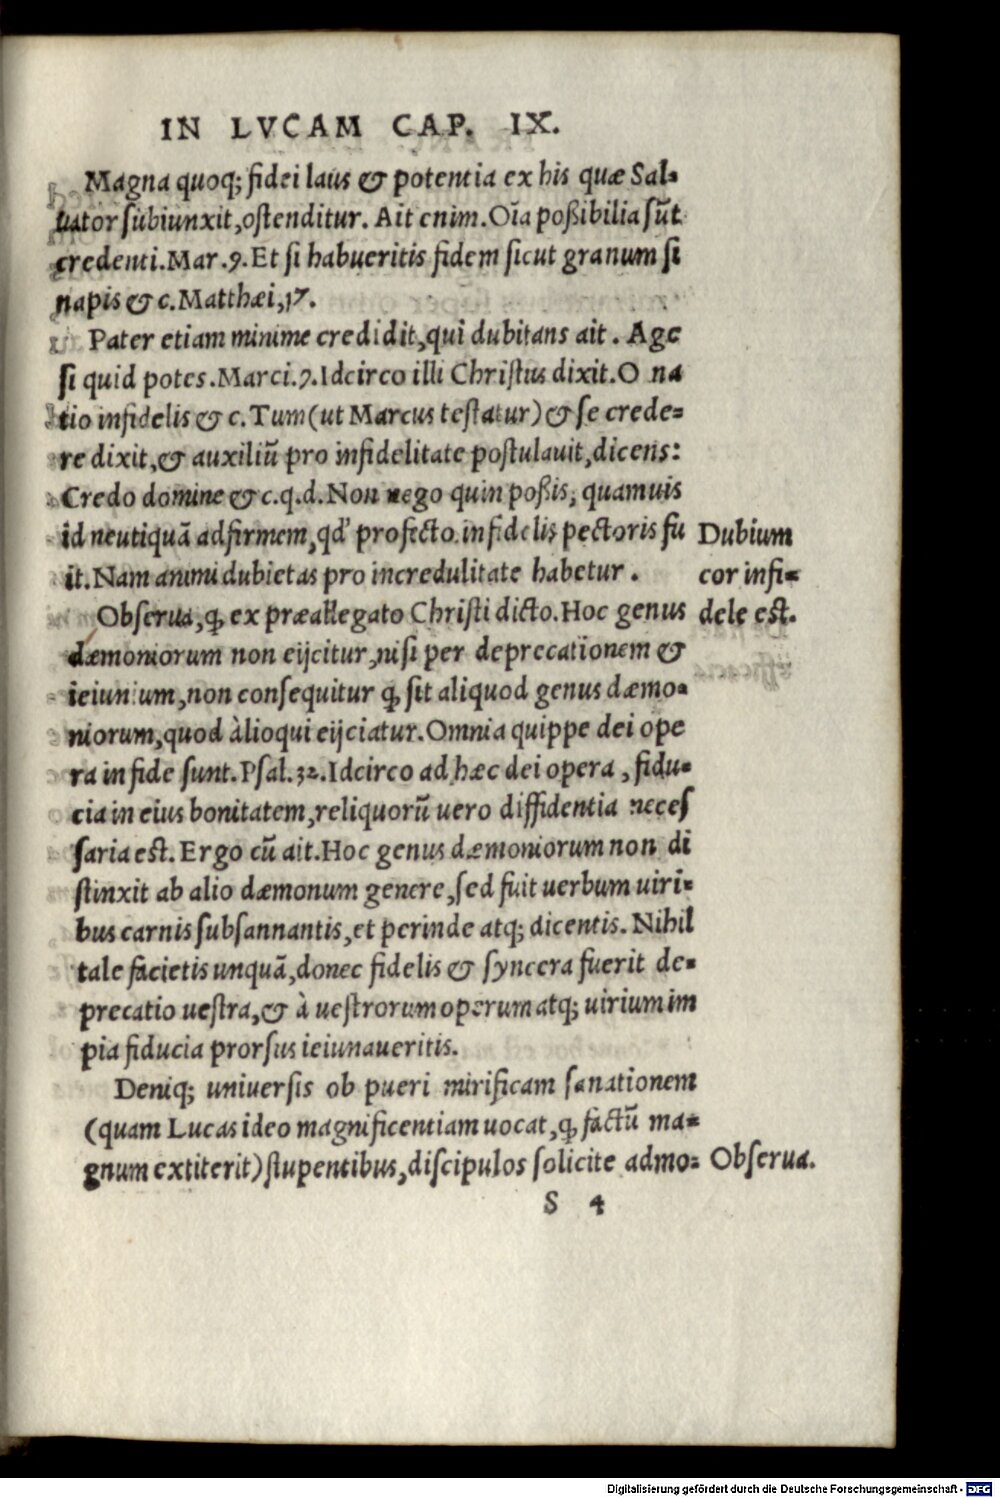 IN LVCAM CAP. IX.
Magna quoq; fidei laus & potentia ex his quæ Sal-
uator subiunxit, ostenditur. Ait enim. Oĩa poßibilia sũt
credenti. Mar. 9. Et si habueritis fidem sicut granum si
napis & c. Matthæi, 17.
Pater etiam minime credidit, qui dubitans ait. Age
si quid potes. Marci. 9. Idcirco illi Christus dixit. O na
tio infidelis & c. Tum (ut Marcus testatur) & se crede=
re dixit, & auxiliũ pro infidelitate postulauit, dicens:
Credo domine & c. q. d. Non nego quin poßis, quamuis
id neutiquã adfirmem, qd' profecto infidelis pectoris fu
it. Nam animi dubietas pro incredulitate habetur.
Dubium
cor infi=
dele est.
Obserua, ꝙ ex præallegato Christi dicto. Hoc genus
dæmoniorum non eijcitur, nisi per deprecationem &
ieiunium, non consequitur ꝙ sit aliquod genus dæmo-
niorum, quod àlioqui eijciatur. Omnia quippe dei ope
ra in fide sunt. Psal. 32. Idcirco ad hæc dei opera, fidu-
cia in eius bonitatem, reliquorũ uero diffidentia neces
saria est. Ergo cũ ait. Hoc genus dæmoniorum non di
stinxit ab alio dæmonum genere, sed fuit uerbum uiri-
bus carnis subsannantis, et perinde atq; dicentis. Nihil
tale facietis unquã, donec fidelis & syncera fuerit de-
precatio uestra, & à uestrorum operum atq; uirium im
pia fiducia prorsus ieiunaueritis.
Deniq; uniuersis ob pueri mirificam sanationem
(quam Lucas ideo magnificentiam uocat, ꝙ factũ ma=
gnum extiterit) stupentibus, discipulos solicite admo=
Obserua.
S 4
Digitalisierung gefördert durch die Deutsche Forschungsgemeinschaft - DFG